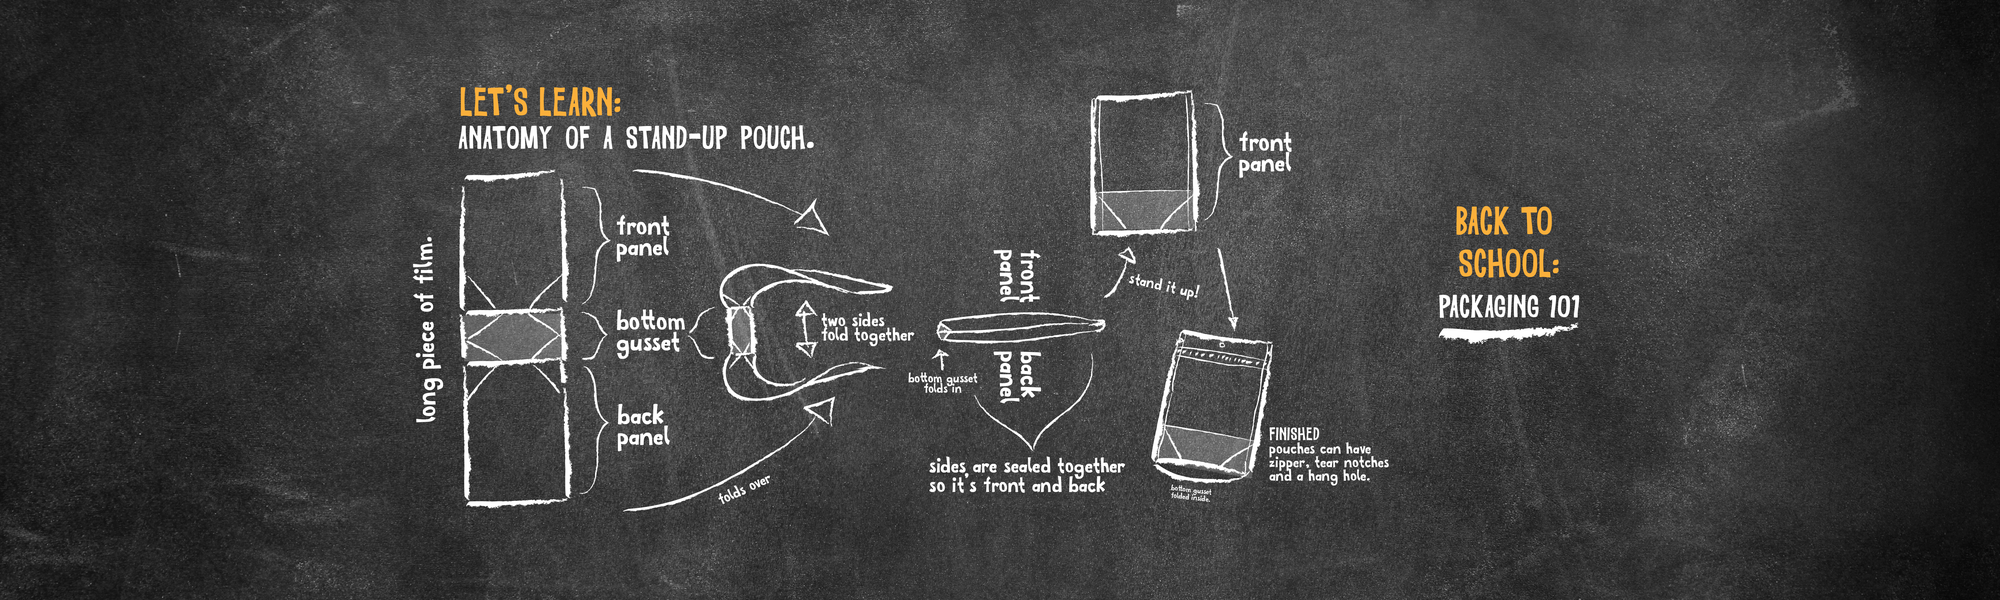 LET'S LEARN:
ANATOMY OF A STAND-UP POUCH.
long piece of film.
front
panel
bottom
gusset
back
panel
folds over
two sides
fold together
front
panel
back
panel
bottom gusset
folds in
sides are sealed together
so it's front and back
stand it up!
front
panel
FINISHED
pouches can have
zipper, tear notches
and a hang hole.
bottom gusset
folded inside.
BACK TO
SCHOOL:
PACKAGING 101